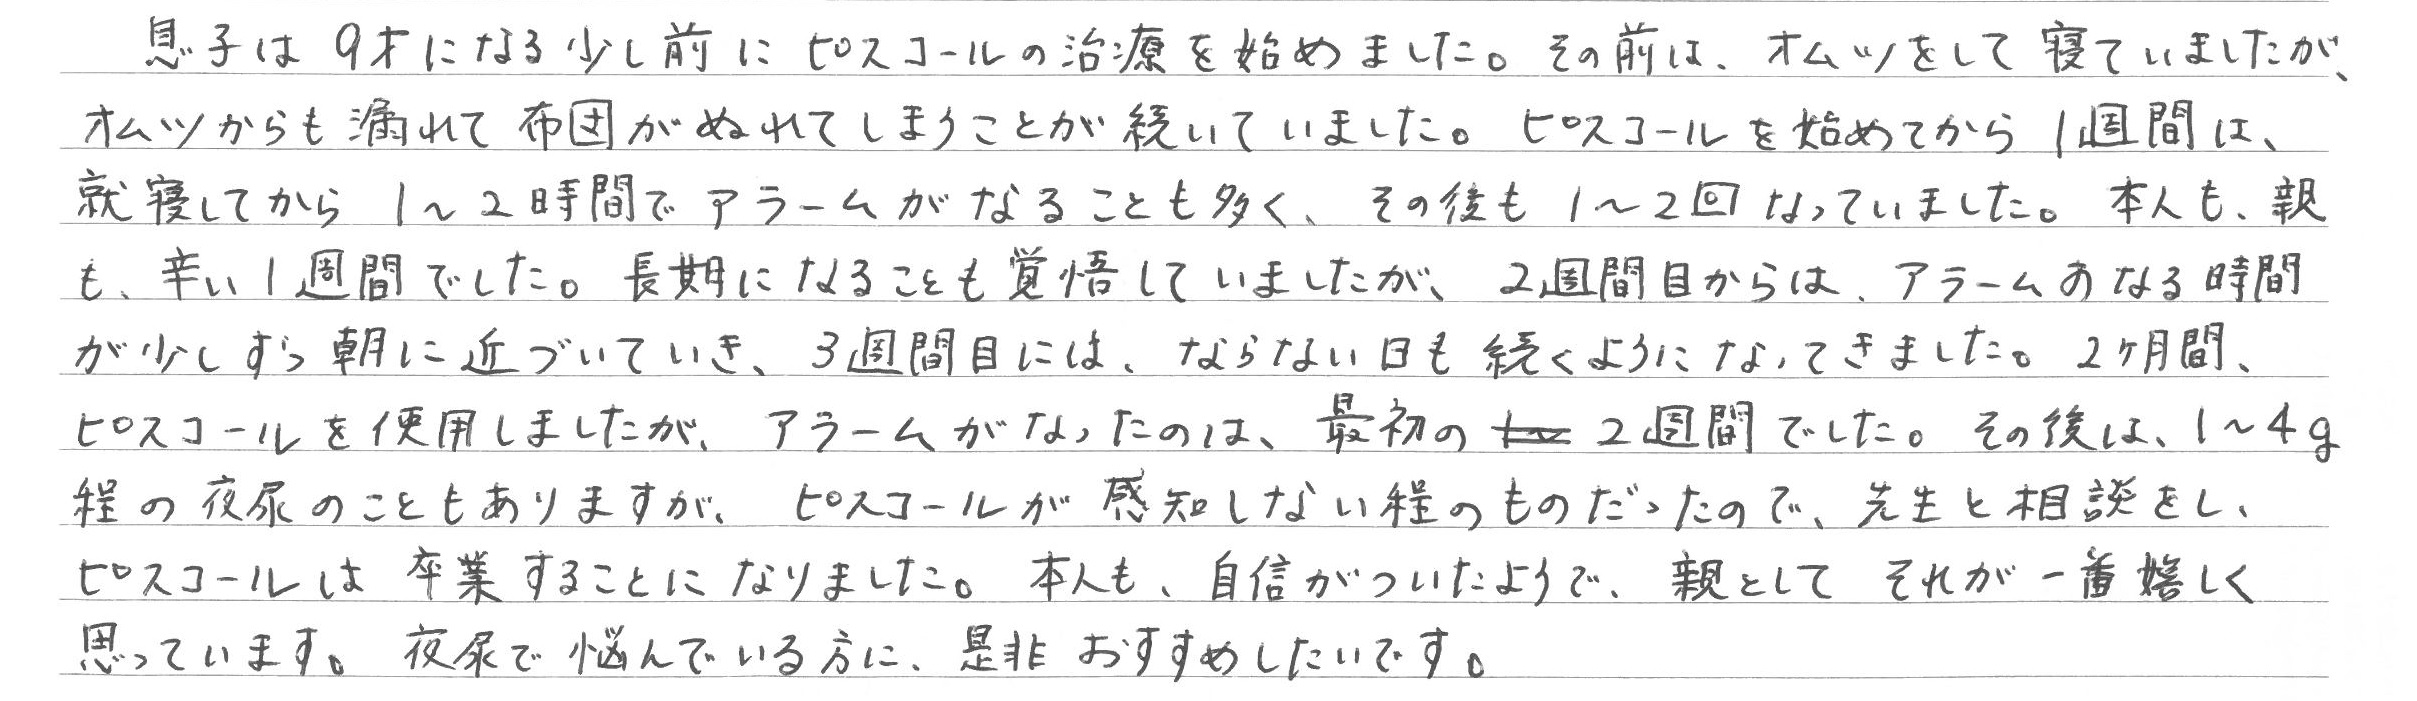 息子は9才になる少し前にピスコールの治療を始めました。その前は、オムツをして寝ていましたが、
オムツからも漏れて布団がぬれてしまうことが続いていました。ピスコールを始めてから1週間は、
就寝してから1~2時間でアラームがなることも多く、その後も1~2回なっていました。本人も、親
も、辛い1週間でした。長期になることも覚悟していましたが、2週間目からは、アラームのなる時間
が少しずつ朝に近づいていき、3週間目には、ならない日も続くようになってきました。2ヶ月間、
ピスコールを使用しましたが、アラームがなったのは、最初の2週間でした。その後は、1~4g
程の夜尿のこともありますが、ピスコールが感知しない程のものだったので、先生と相談をし、
ピスコールは卒業することになりました。本人も、自信がついたようで、親としてそれが一番嬉しく
思っています。夜尿で悩んでいる方に、是非おすすめしたいです。